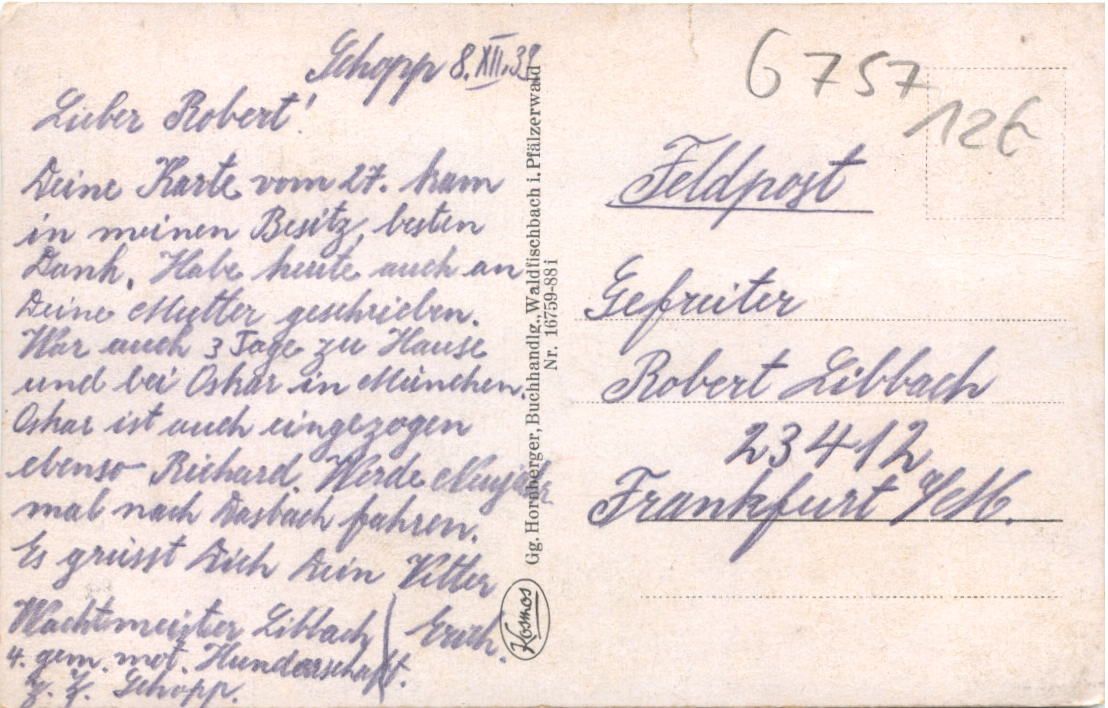 Schopp 8.XII.39
Lieber Robert!
Deine Karte vom 27. kam
in meinen Besitz, besten
Dank. Habe heute auch an
Deine Mutter geschrieben.
War auch 3 Tage zu Hause
und bei Oskar in München.
Oskar ist auch eingezogen
ebenso Richard. Werde Neujahr
mal nach Dasbach fahren.
Es grüsst Dich Dein Vetter
Erich.
Wachtmeister Libbach
4. gem. mot. Hunderschaft.
z. Z. Schopp.
Gg. Hornberger, Buchhandlg., Waldfischbach i. Pfälzerwald
Nr. 16759-88i
Kosmos
6757
12€
Feldpost
Gefreiter
Robert Libbach
23412
Frankfurt a/M.